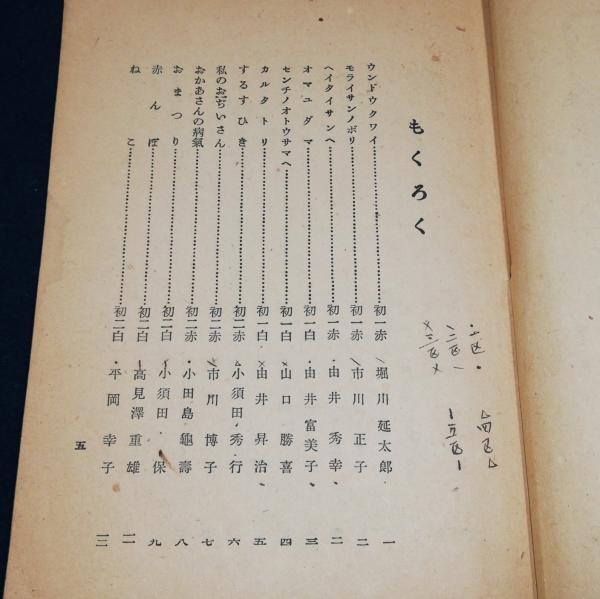 もくろく
ウンドウクワイ……初一赤 堀川延太郎 一
モライサンノボリ……初一赤 市川正子 二
ヘイタイサンヘ……初一赤 由井秀幸 二
オマユダマ……初一白 由井富美子 三
センチノオトウサマヘ……初一白 山口勝喜 四
カルタトリ……初一白 由井昇治 五
するすひき……初二赤 小須田秀行 六
私のおぢいさん……初二赤 市川博子 七
おかあさんの病氣……初二赤 小田島龜壽 八
おまつり……初二白 小須田保 九
赤んぼ……初二白 高見澤重雄 一一
ねこ……初二白 平岡幸子
五
・一区・
\二区\
×三区×
△四区△
|五区|